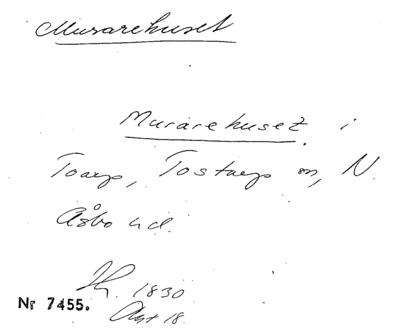 Murarehuset
Murarehuset i
Toarp, Tostarp sn, N.
Åsbo hd.
1830
Nr 7455.
18